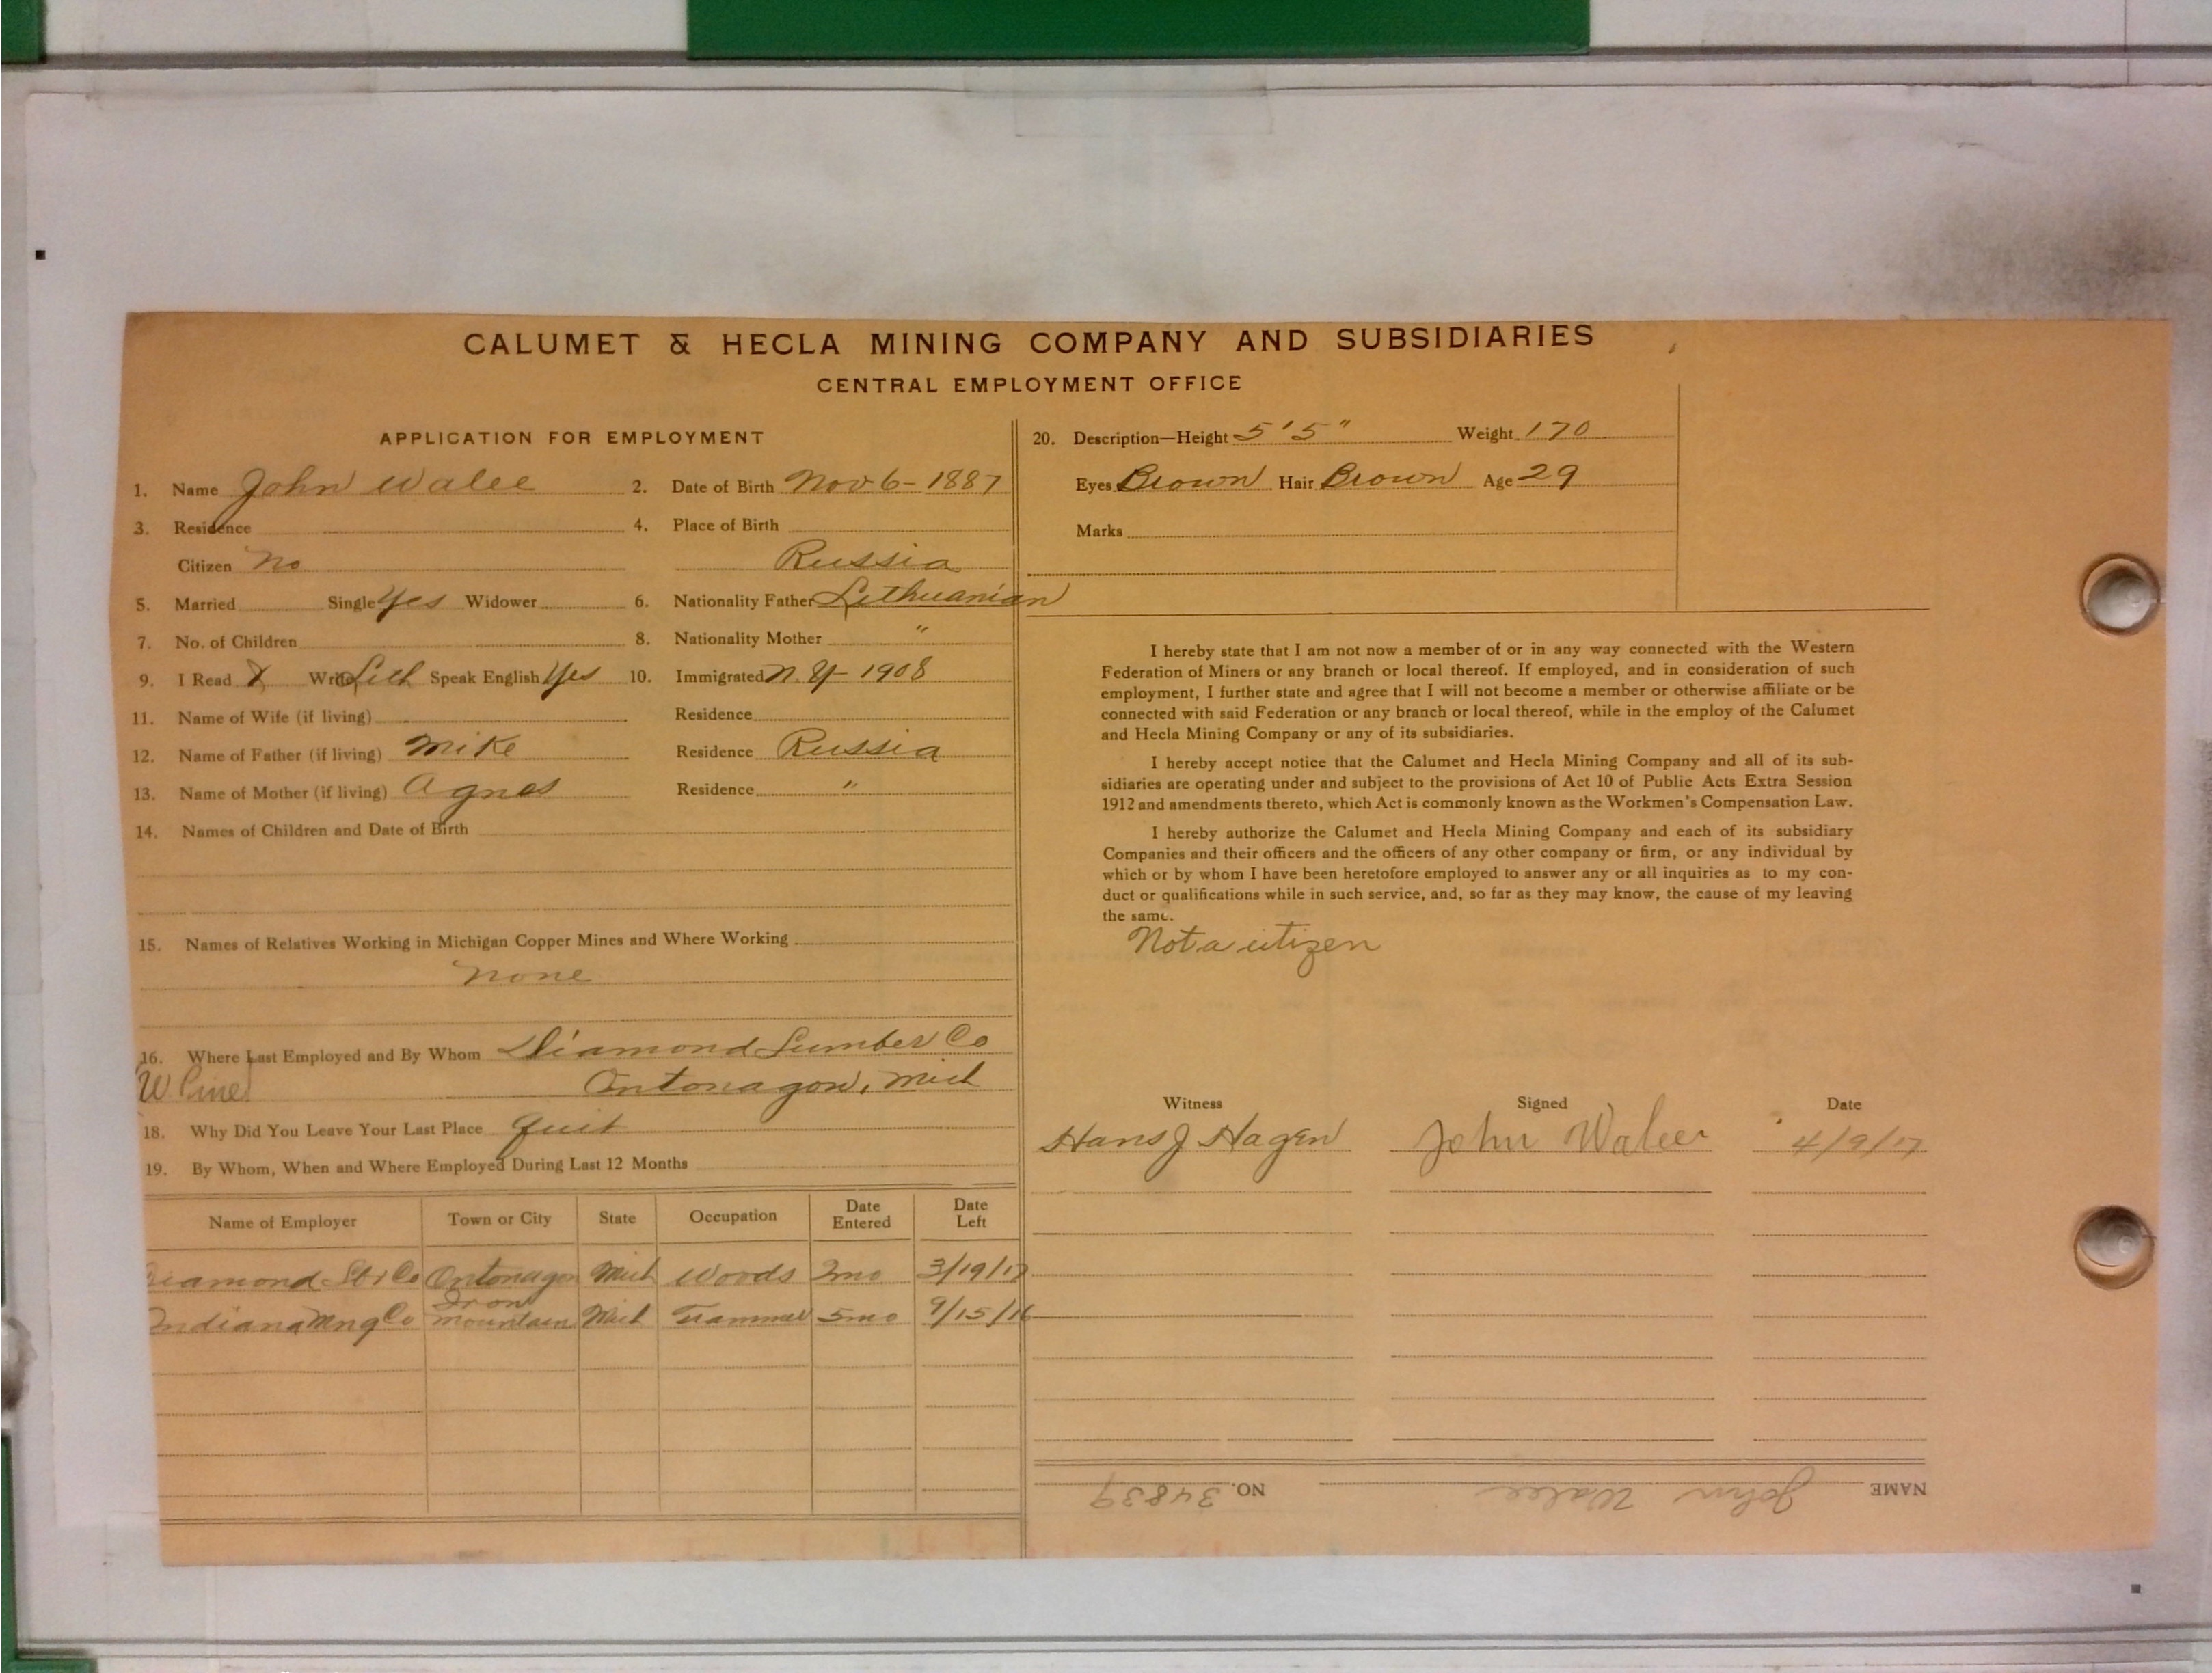 CALUMET & HECLA MINING COMPANY AND SUBSIDIARIES
CENTRAL EMPLOYMENT OFFICE
APPLICATION FOR EMPLOYMENT
1. Name John Walee 2. Date of Birth Nov 6 - 1887
3. Residence 4. Place of Birth
Citizen No Russia
5. Married Single Yes Widower 6. Nationality Father Lithuanian
7. No. of Children 8. Nationality Mother "
9. I Read X Write Lith Speak English Yes 10. Immigrated N.Y - 1908
11. Name of Wife (if living) Residence
12. Name of Father (if living) Mike Residence Russia
13. Name of Mother (if living) Agnes Residence "
14. Names of Children and Date of Birth
15. Names of Relatives Working in Michigan Copper Mines and Where Working
None
16. Where Last Employed and By Whom Diamond Lumber Co
W. Pine Ontonagon, Mich
18. Why Did You Leave Your Last Place Quit
19. By Whom, When and Where Employed During Last 12 Months
Name of Employer Town or City State Occupation Date Entered Date Left
Diamond Co Ontonagon Mich Woods 2mo 3/19/17
Indiana Mng Co Iron Mountain Mich Trammer 5mo 9/15/16
20. Description—Height 5'5" Weight 170
Eyes Brown Hair Brown Age 29
Marks
I hereby state that I am not now a member of or in any way connected with the Western
Federation of Miners or any branch or local thereof. If employed, and in consideration of such
employment, I further state and agree that I will not become a member or otherwise affiliate or be
connected with said Federation or any branch or local thereof, while in the employ of the Calumet
and Hecla Mining Company or any of its subsidiaries.
I hereby accept notice that the Calumet and Hecla Mining Company and all of its sub-
sidiaries are operating under and subject to the provisions of Act 10 of Public Acts Extra Session
1912 and amendments thereto, which Act is commonly known as the Workmen's Compensation Law.
I hereby authorize the Calumet and Hecla Mining Company and each of its subsidiary
Companies and their officers and the officers of any other company or firm, or any individual by
which or by whom I have been heretofore employed to answer any or all inquiries as to my con-
duct or qualifications while in such service, and, so far as they may know, the cause of my leaving
the same.
Not a citizen
Witness Signed Date
Hans J Hagen John Walee 4/9/17
NAME John Walee NO. 34839